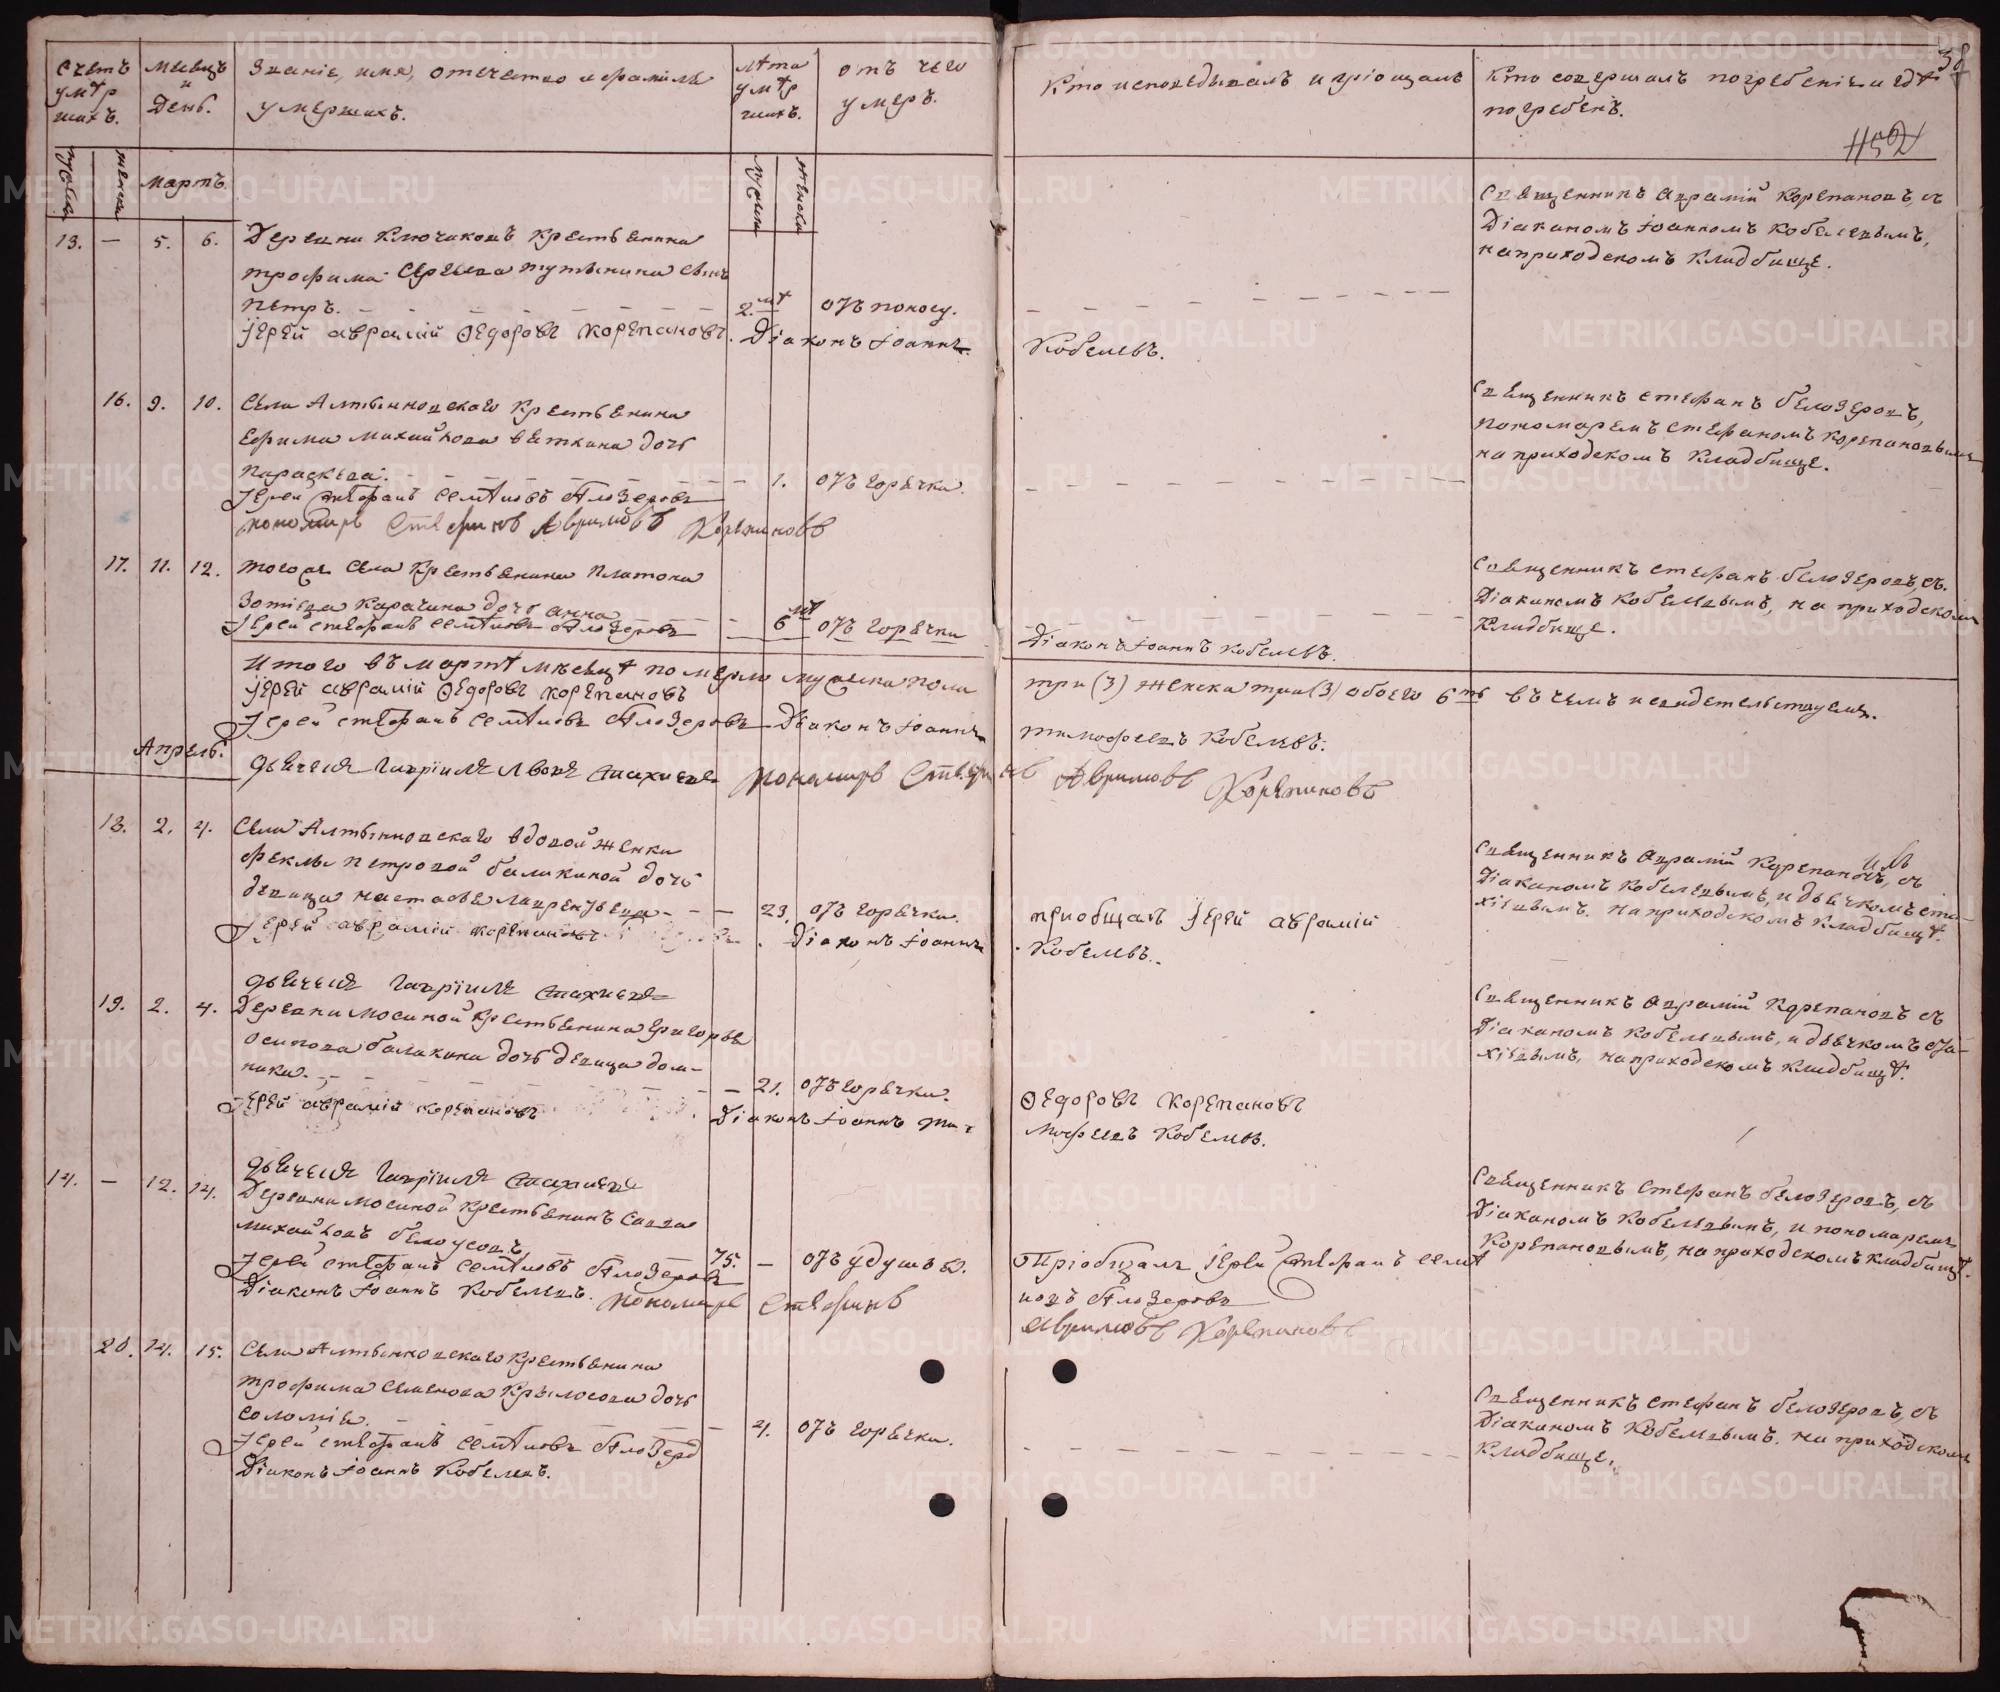 Счетъ умѣршихъ.
Месяцъ и День.
Званіе, имя, отечество и фамилія умершихъ.
Лѣта умѣршихъ.
отъ чего умеръ.
Кто исповедывалъ и пріощалъ
Кто совершалъ погребеніе и гдѣ погребенъ.
38
1152
мужеска
женска
Мартъ.
мужеска
женска
13. — 5. 6. Деревни Ключиковъ Крестьянина
трофима Сергѣева сынъ
петръ. 2. лѣт отъ поносу.
Священникъ Аврамій Корепановъ, съ
Діакономъ Іоанномъ Кобелевымъ,
на приходскомъ Кладбище.
Іерей Аврамій Ѳедоровъ Корепановъ. Діаконъ Іоаннъ Кобелевъ.
16. 9. 10. Села Алтынновскаго Крестьянина
Ефима Михайлова Вяткина дочь
Параскева. 1. отъ горячки.
Священникъ Стефанъ Белозеровъ,
пономаремъ Стефаномъ Корепановымъ
на приходскомъ Кладбище.
Іерей Стефанъ Семеновъ Белозеровъ
пономарь Стефанъ Аврамовъ Корепановъ
17. 11. 12. тогожъ Села Крестьянина Платона
Зотіева Карачина дочь Анна 6 лѣт отъ горячки
Священникъ Стефанъ Белозеровъ, съ
Діакономъ Кобелевымъ, на приходскомъ
Кладбище.
Іерей Стефанъ Семеновъ Белозеровъ
Діаконъ Іоаннъ Кобелевъ.
Итого въ мартѣ месяцѣ померло мужеска пола три (3) женска три (3) обоего 6ть въ чемъ и свидетельствуемъ.
Іерей Аврамій Ѳедоровъ Корепановъ
Іерей Стефанъ Семеновъ Белозеровъ Діаконъ Іоаннъ тимофеевъ Кобелевъ.
Апрель.
дьячекъ Гавріилъ Львовъ Стахиевъ пономарь Стефанъ Аврамовъ Корепановъ
18. 2. 4. Села Алтынновскаго вдовой женки
Феклы Петровой балакиной дочь
девица настасья лаврентьева 23. отъ горячки.
приобщалъ Іерей Аврамій
Священникъ Аврамій Корепановъ, съ
Діакономъ Кобелевымъ, и дьячкомъ Ста-
хіевымъ. на приходскомъ Кладбищѣ.
Іерей Аврамій Корепановъ Діаконъ Іоаннъ Кобелевъ.
дьячекъ Гавріилъ Стахиевъ
19. 2. 4. Деревни Мосиной Крестьянина Григорья
Осипова балакина дочь девица дом-
ника. 21. отъ горячки.
Священникъ Аврамій Корепановъ съ
Діакономъ Кобелевымъ, и дьячкомъ Ста-
хіевымъ, на приходскомъ Кладбищѣ.
Іерей Аврамій Корепановъ Ѳедоровъ Корепановъ
Діаконъ Іоаннъ Тимофеевъ Кобелевъ.
дьячекъ Гавріилъ Стахиевъ
14. — 12. 14. Деревни Мосиной Крестьянинъ Савва
Михайловъ белоусовъ 75. — отъ удушья.
Пріобщалъ Іерей Стефанъ Семеновъ Белозеровъ
Священникъ Стефанъ Белозеровъ, съ
Діакономъ Кобелевымъ, и пономаремъ
Корепановымъ, на приходскомъ кладбищѣ.
Іерей Стефанъ Семеновъ Белозеровъ
Діаконъ Іоаннъ Кобелевъ. пономарь Стефанъ Аврамовъ Корепановъ
20. 14. 15. Села Алтынновскаго Крестьянина
трофима Семенова Крылосова дочь
соломія. 4. отъ горячки.
Священникъ Стефанъ Белозеровъ, съ
Діакономъ Кобелевымъ. на приходскомъ
Кладбище.
Іерей Стефанъ Семеновъ Белозеровъ
Діаконъ Іоаннъ Кобелевъ.
METRIKI.GASO-URAL.RU